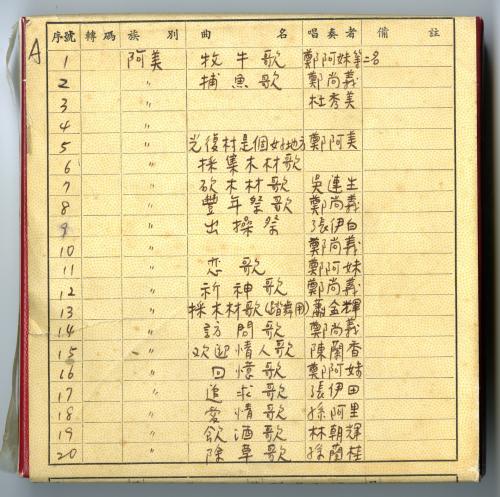 序號 轉碼 族別 曲名 唱奏者 備註
A
1 阿美 牧牛歌 鄭阿妹等二名
2 〃 捕魚歌 鄭尚義
3 〃 杜秀美
4 〃
5 〃 光復村是個好地方 鄭阿美
6 〃 採集木材歌
7 〃 砍木材歌 吳連生
8 〃 豐年祭歌 鄭尚義
9 〃 出操祭 張伊白
10 〃 鄭尚義
11 〃 恋歌 鄭阿妹
12 〃 祈神歌 鄭尚義
13 〃 採木材歌(踏舞用) 蕭金輝
14 〃 訪問歌 鄭尚義
15 〃 欢迎情人歌 陳蘭香
16 〃 回憶歌 鄭阿妹
17 〃 追求歌 張伊田
18 〃 愛情歌 孫阿里
19 〃 飲酒歌 林朝輝
20 〃 除草歌 孫蘭桂